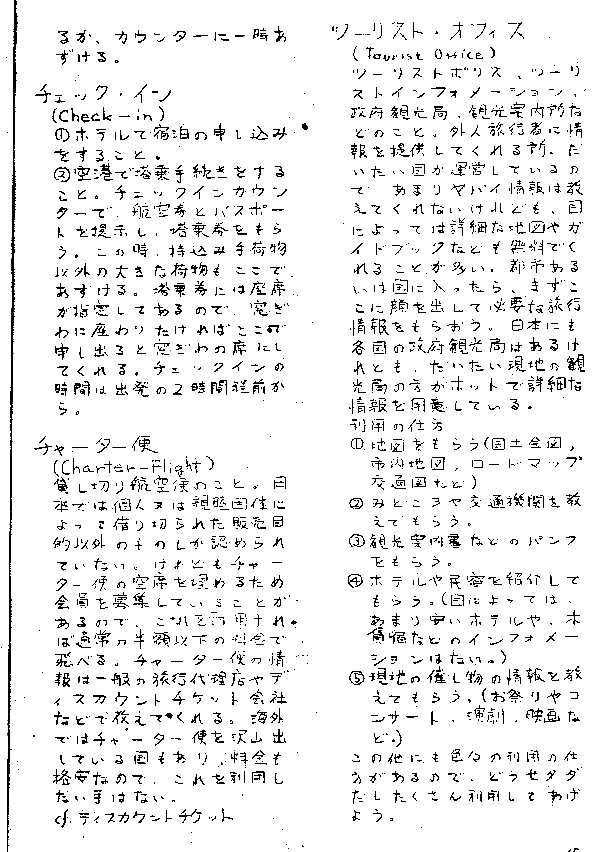 るか、カウンターに一時あ
ずける。
チェック・イン
(Check-in)
①ホテルで宿泊の申し込み
をすること。
②空港で塔乗手続きをする
こと。チェックインカウン
ターで、航空券とパスポー
トを提示し、塔乗券をもら
う。この時、持込み手荷物
以外の大きな荷物もここで
あずける。塔乗券には座席
が指定してあるので、窓ぎ
わに座わりたければここで
申し出ると窓ぎわの席にし
てくれる。チェックインの
時間は出発の2時間程前か
ら。
チャーター便
(Charter-Flight)
貸し切り航空便のこと。日
本では個人又は親睦団体に
よって借り切られた販売目
的以外のものしか認められ
ていない。けれどもチャー
ター便の空席を埋めるため
会員を募集していることが
あるので、これを利用すれ
ば通常の半額以下の料金で
飛べる。チャーター便の情
報は一般の旅行代理店やデ
ィスカウントチケット会社
などで教えてくれる。海外
ではチャーター便を沢山出
している国もあり、料金も
格安なので、これを利用し
ない手はない。
cf. ディスカウントチケット
ツーリスト・オフィス
(Tourist Office)
ツーリストポリス、ツーリ
ストインフォメーション、
政府観光局、観光案内所な
どのこと。外人旅行者に情
報を提供してくれる所。だ
いたい国が運営しているの
で、あまりヤバイ情報は教
えてくれないけれども、国
によっては詳細な地図やガ
イドブックなども無料でく
れることが多い。都市ある
いは国に入ったら、まずこ
こに顔を出して必要な旅行
情報をもらおう。日本にも
各国の政府観光局はあるけ
れとも、だいたい現地の観
光局の方がホットで詳細な
情報を用意している。
利用の仕方
①地図をもらう(国土全図,
市内地図,ロードマップ
交通図など)
②みどころや交通機関を教
えてもらう。
③観光案内書などのパンフ
をもらう。
④ホテルや民宿を紹介して
もらう。(国によっては、
あまり安いホテルや、木
賃宿などのインフォメー
ションはない。)
⑤現地の催し物の情報を教
えてもらう。(お祭りやコ
ンサート、演劇、映画な
ど。)
この他にも色々の利用の仕
方があるので、どうせタダ
だしたくさん利用してあげ
よう。